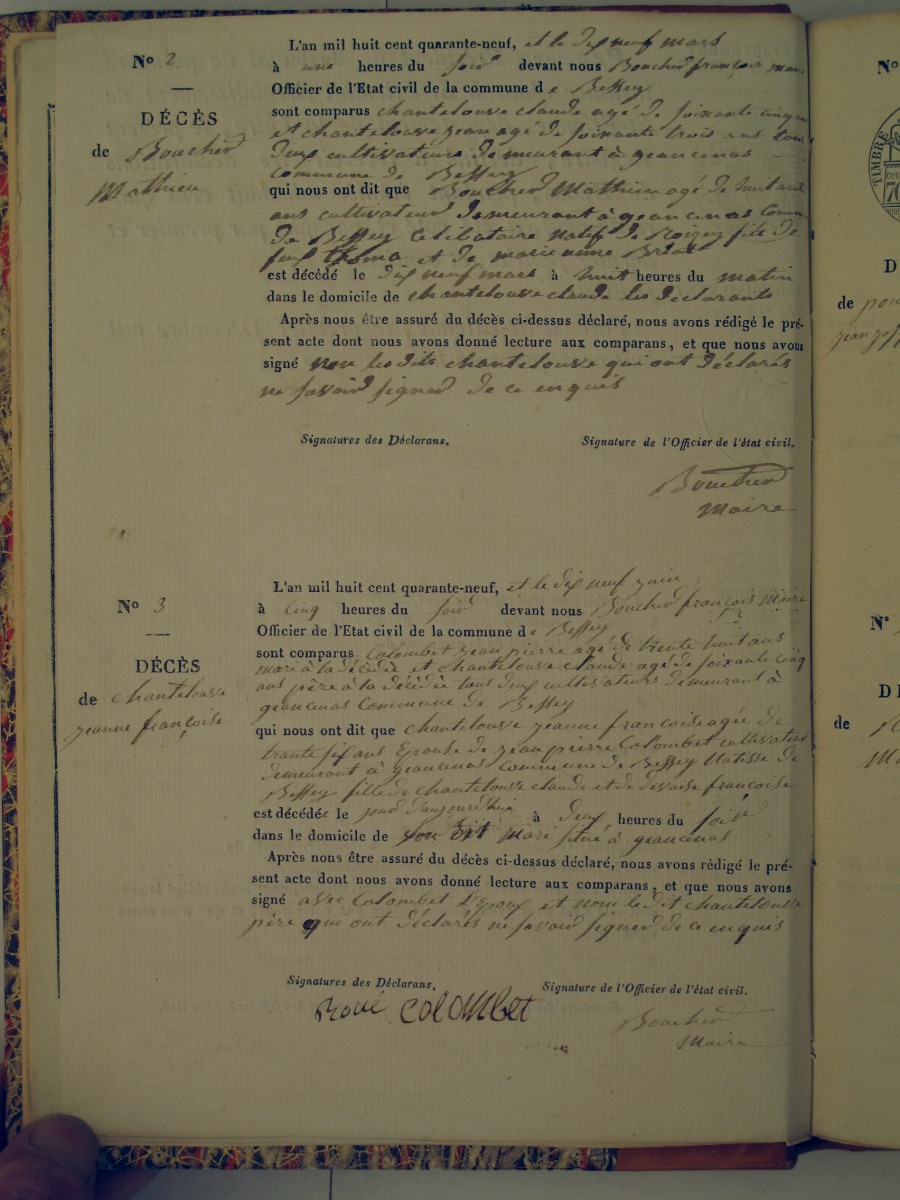 Nº 2
DÉCÈS
de Boucher
Mathieu
L'an mil huit cent quarante-neuf, et le dix neuf mars
à une heures du soir devant nous Boucher françois maire
Officier de l'Etat civil de la commune de Bessey
sont comparus chantelouve claude agé de soixante cinq ans
et chantelouve jean agé de soixante trois ans tous
deux cultivateurs demeurant à geancenas
commune de Bessey
qui nous ont dit que Boucher Mathieu agé de huitante
ans cultivateur demeurant à geancenas comm
de Bessey celibataire natif de Roizey fils de
feux thoma et de marie anne
est décédé le dix neuf mars à huit heures du matin
dans le domicile de chantelouve claude les declarants
Après nous être assuré du décès ci-dessus déclaré, nous avons rédigé le pré-
sent acte dont nous avons donné lecture aux comparans, et que nous avons
signé non les dits chantelouve qui ont déclarés
ne savoir signer de ce enquis
Signatures des Déclarans.
Signature de l'Officier de l'état civil.
Boucher
Maire
Nº 3
DÉCÈS
de chantelouve
jeanne françoise
L'an mil huit cent quarante-neuf, et le dix neuf juin
à cinq heures du soir devant nous Boucher françois Maire
Officier de l'Etat civil de la commune de Bessey
sont comparus Colombet jean pierre agé de trente huit ans
mari à la décédée et chantelouve claude agé de soixante cinq
ans père à la décédée tous deux cultivateurs demeurant à
geancenas commune de Bessey
qui nous ont dit que chantelouve jeanne francoise agée de
trante six ans Epouse de jean pierre Colombet cultivateur
demeurant à geancenas commune de Bessey Natisse de
Bessey fille de chantelouve claude et de devaise françoise
est décédée le jour d'aujourd'hui à deux heures du soir
dans le domicile de son dit mari situé à geancenas
Après nous être assuré du décès ci-dessus déclaré, nous avons rédigé le pré-
sent acte dont nous avons donné lecture aux comparans, et que nous avons
signé avec Colombet l'Epoux et nom le dit chantelouve
père qui ont déclarés ne savoir signer de ce enquis
Signatures des Déclarans.
Signature de l'Officier de l'état civil.
colombet
Boucher
Maire
Nº
TIMBRE
70
D
de
jean
Nº
D
de